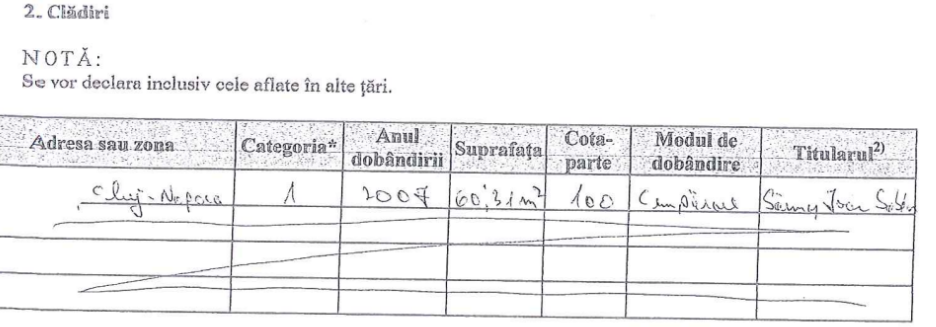 2. Clădiri
NOTĂ:
Se vor declara inclusiv cele aflate în alte țări.
Adresa sau zona Categoria* Anul dobândirii Suprafața Cota-parte Modul de dobândire Titularul²⁾
Cluj-Napoca 1 2007 60,31 m² 100 Cumpărare Ioan